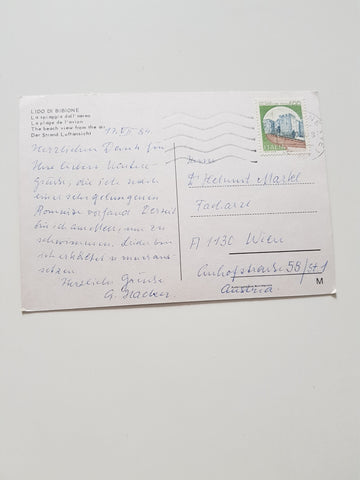 LIDO DI BIBIONE
La spiaggia dall'aereo
La plage de l'avion
The beach view from the air
Der Strand Luftansicht
17. VII 84
Herzlichen Dank für
Ihre lieben
Grüsse, die ich nach
einer sehr gelungenen
vorfand. Derzeit
bin ich am Meer, um zu
schwimmen. Leider bin
ich erkältet u. muss aus-
setzen.
Herzliche Grüsse
G.
ITALIA
Herrn
Dr Helmut Markl
Facharzt
A 1130 Wien
Auhofstrasse 55/
Austria
M